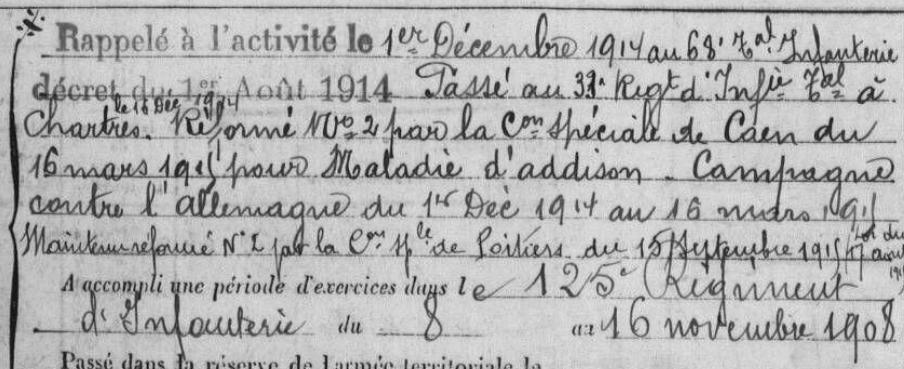 Rappelé à l'activité le 1er Décembre 1914 au 68e Tal Infanterie
décret du 1er Août 1914 Passé au 33e Regt d'Infie Tal à
le 16 Dec 1914
Chartres. Réformé No 2 par la Con spéciale de Caen du
16 mars 1915 pour Maladie d'addison. Campagne
contre l'allemagne du 1er Déc 1914 au 16 mars 1915
Maintenu réformé No 2 par la Con sple de Poitiers du 15 Septembre 1915 Loi du
17 août 1915
A accompli une période d'exercices dans le 125e Régiment
d'Infanterie du 8 au 16 novembre 1908
Passé dans la réserve de l'armée territoriale le